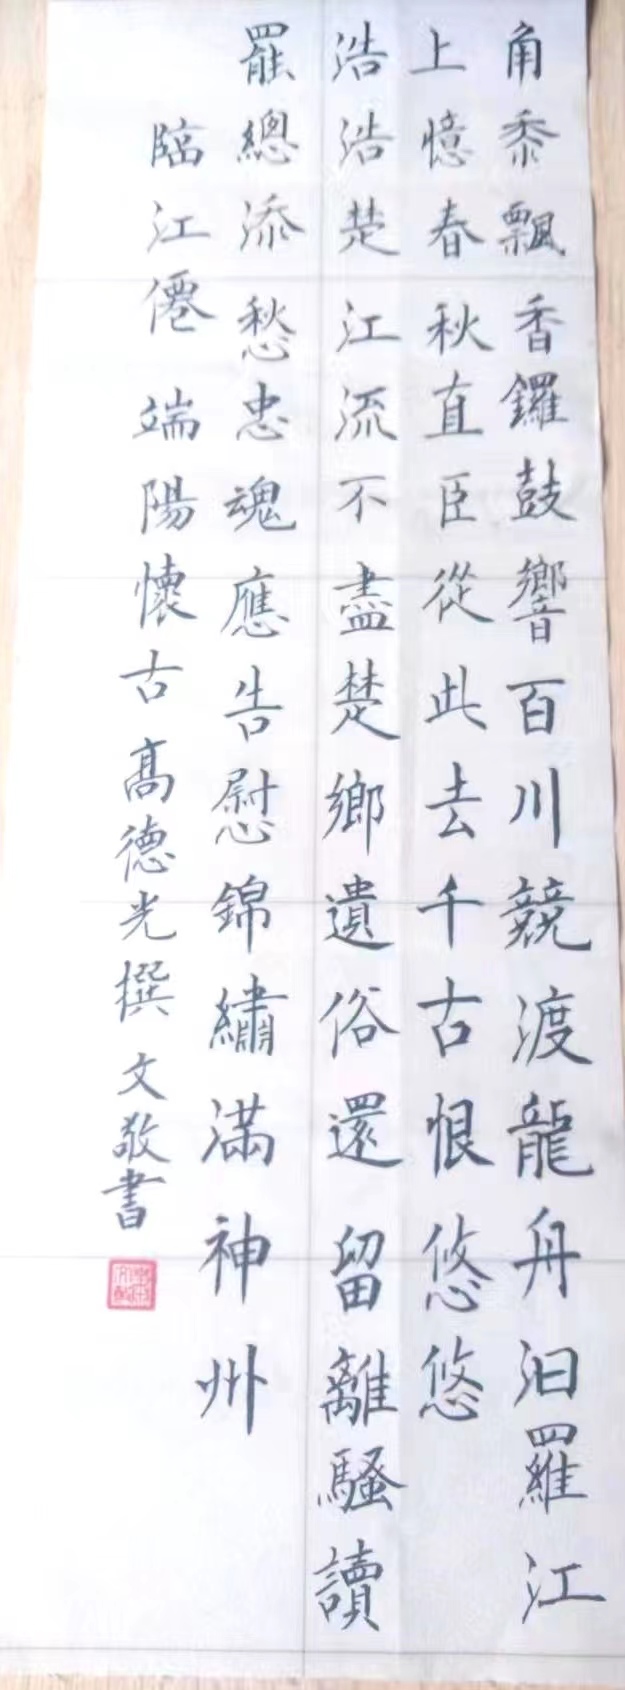 角黍飄香鑼鼓響百川競渡龍舟汨羅江
上憶春秋直臣從此去千古恨悠悠
浩浩楚江流不盡楚鄉遺俗還留離騷讀
罷總添愁忠魂應告慰錦繡滿神州
臨江僊 端陽懷古 高德光撰 文敬書